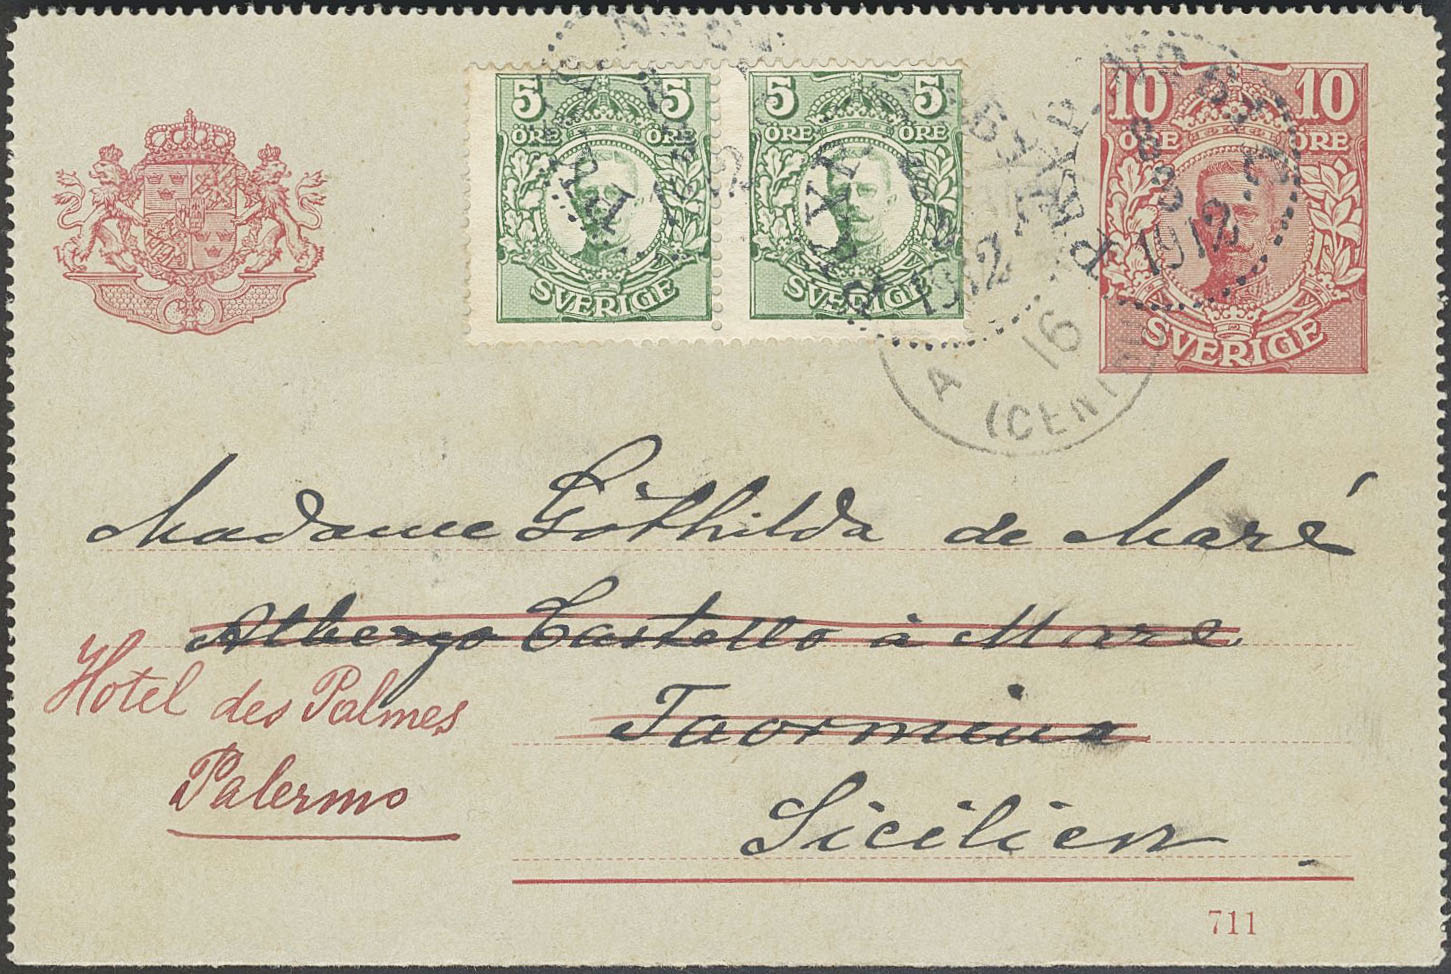 5 5 5 5 10 10
ÖRE ÖRE ÖRE ÖRE ÖRE ÖRE
SVERIGE SVERIGE SVERIGE
1912 1912
A 16
Madame Göthilda de Maré
Albergo Castello à Mare
Hotel des Palmes
Taormina
Palermo
Sicilien
711